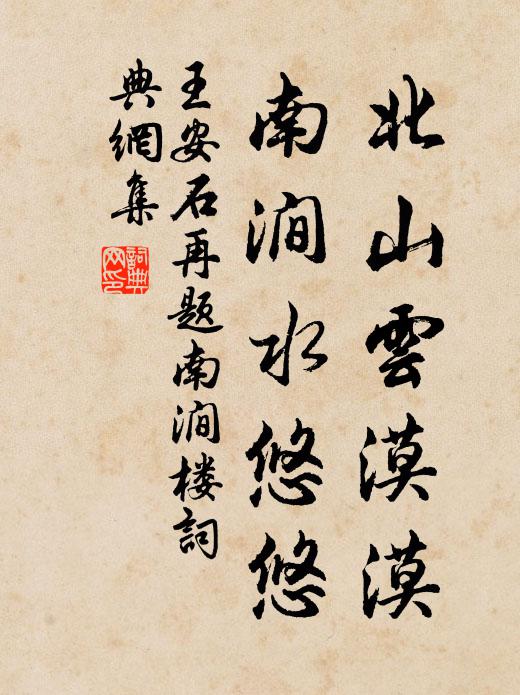 北山雲漠漠
南澗水悠悠
王安石再题南澗楼詞
典網集
詞典網印